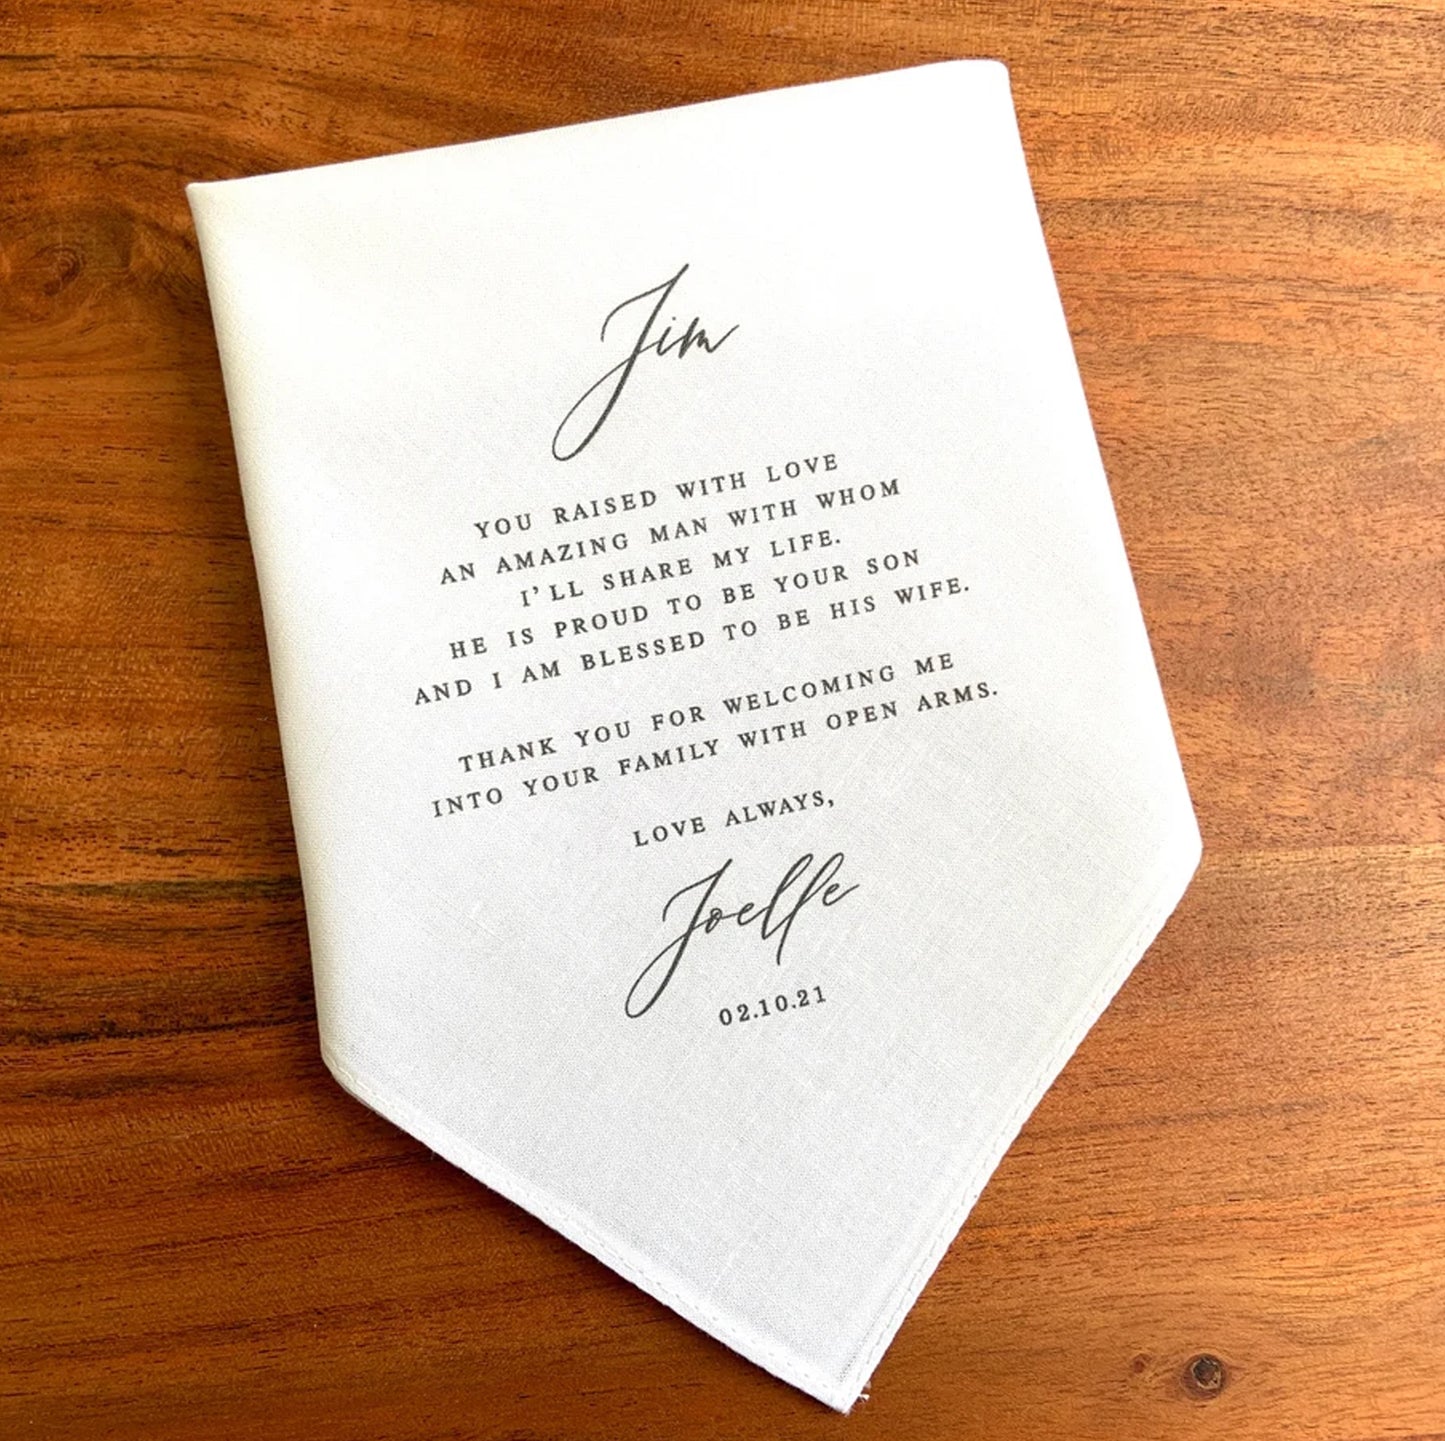 Jim
YOU RAISED WITH LOVE
AN AMAZING MAN WITH WHOM
I'LL SHARE MY LIFE.
HE IS PROUD TO BE YOUR SON
AND I AM BLESSED TO BE HIS WIFE.
THANK YOU FOR WELCOMING ME
INTO YOUR FAMILY WITH OPEN ARMS.
LOVE ALWAYS,
Joelle
02.10.21